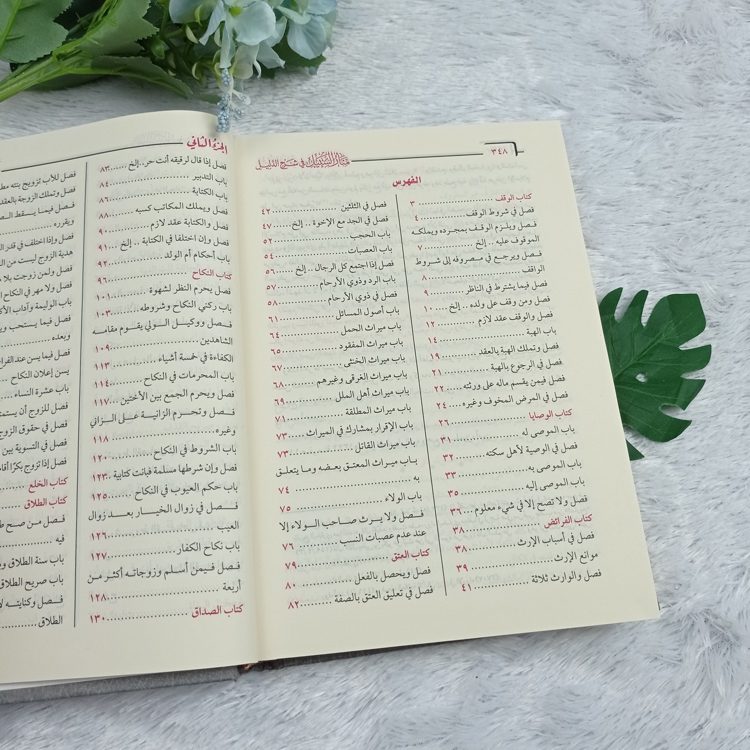 ٣٤٨
منار السبيل في شرح الدليل
الفهرس
كتاب الوقف ٣
فصل في شروط الوقف ٤
فصل ويلزم الوقف بمجرده ويملكه
الموقوف عليه .. إلخ ٧
فصل ويرجع في مصروفه إلى شروط
الواقف ٨
فصل فيما يشترط في الناظر ٩
فصل ومن وقف على ولده .. إلخ ١٠
فصل والوقف عقد لازم ١٢
باب الهبة ١٤
فصل وتملك الهبة بالعقد ١٩
فصل في الرجوع بالهبة ٢١
فصل فيمن يقسم ماله على ورثته ٢٢
فصل في المرض المخوف وغيره ٢٤
كتاب الوصايا ٢٦
باب الموصى له ٣١
فصل في الوصية لأهل سكته ٣٢
باب الموصى به ٣٣
باب الموصى إليه ٣٥
فصل ولا تصح إلا في شيء معلوم ٣٦
كتاب الفرائض ٣٨
فصل في أسباب الإرث ٣٨
موانع الإرث ٣٩
فصل والوارث ثلاثة ٤١
فصل في الثلثين ٤٢
فصل في الجد مع الإخوة .. إلخ ٤٧
باب الحجب ٥٢
باب العصبات ٥٤
فصل إذا اجتمع كل الرجال .. إلخ ٥٦
باب الرد وذوي الأرحام ٥٧
فصل في ذوي الأرحام ٥٨
باب أصول المسائل ٦١
باب ميراث الحمل ٦٤
باب ميراث المفقود ٦٥
باب ميراث الخنثى ٦٧
باب ميراث الغرقى وغيرهم ٦٨
باب ميراث أهل الملل ٦٩
باب ميراث المطلقة ٧١
باب الإقرار بمشارك في الميراث ٧٣
باب ميراث القاتل ٧٣
باب ميراث المعتق بعضه وما يتعلق
به ٧٤
باب الولاء ٧٥
فصل ولا يرث صاحب الولاء إلا
عند عدم عصبات النسب ٧٦
كتاب العتق ٧٩
فصل ويحصل بالفعل ٨٠
فصل في تعليق العتق بالصفة ٨٢
الجزء الثاني
فصل إذا قال لرقيقه أنت حر .. إلخ ٨٣
باب التدبير ٨٤
باب الكتابة ٨٦
فصل ويملك المكاتب كسبه ٨٨
فصل والكتابة عقد لازم ٩٠
فصل وإن اختلفا في الكتابة .. إلخ ٩١
باب أحكام أم الولد ٩٢
كتاب النكاح ٩٦
فصل يحرم النظر لشهوة ١٠١
باب ركني النكاح وشروطه ١٠٣
فصل ووكيل الولي يقوم مقامه
الشاهدين ١٠٩
الكفاءة في خمسة أشياء ١١٣
باب المحرمات في النكاح ١١٤
فصل ويحرم الجمع بين الأختين ١١٧
فصل وتحرم الزانية على الزاني
وغيره ١١٨
باب الشروط في النكاح ١٢٠
فصل وإن شرطها مسلمة فبانت كتابية ١٢٣
باب حكم العيوب في النكاح ١٢٥
فصل في زوال الخيار بعد زوال
العيب ١٢٦
باب نكاح الكفار ١٢٧
فصل فيمن أسلم وزوجاته أكثر من
أربعة ١٢٨
كتاب الصداق ١٣٠
فصل للأب تزويج بنته
فصل وتملك الزوجة بالعقد
فصل فيما يسقط
ويقرره
فصل وإذا اختلفا في قدر
هدية الزوج ليست من
فصل ولمن زوجت بلا
فصل ولا مهر في النكاح
باب الوليمة وآداب
فصل فيما يستحب
وبعده
فصل فيما يسن عند
يسن إعلان النكاح
باب عشرة النساء
فصل للزوج أن
فصل في حقوق
فصل في التسوية بين
فصل إذا تزوج بكرا
كتاب الخلع
كتاب الطلاق
فصل من صح
فيه
باب سنة الطلاق
باب صريح الطلاق
فصل وكنايته
الطلاق